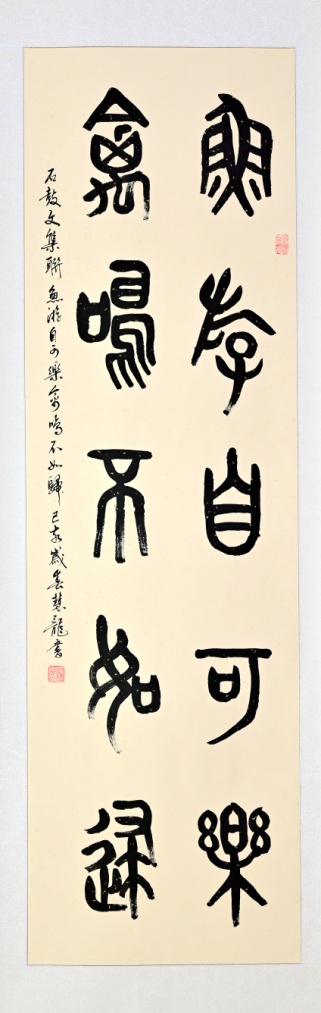 魚游自可樂
禽鳴不如歸
石鼓文集聯 魚游自可樂禽鳴不如歸 己亥歲春慧龍書